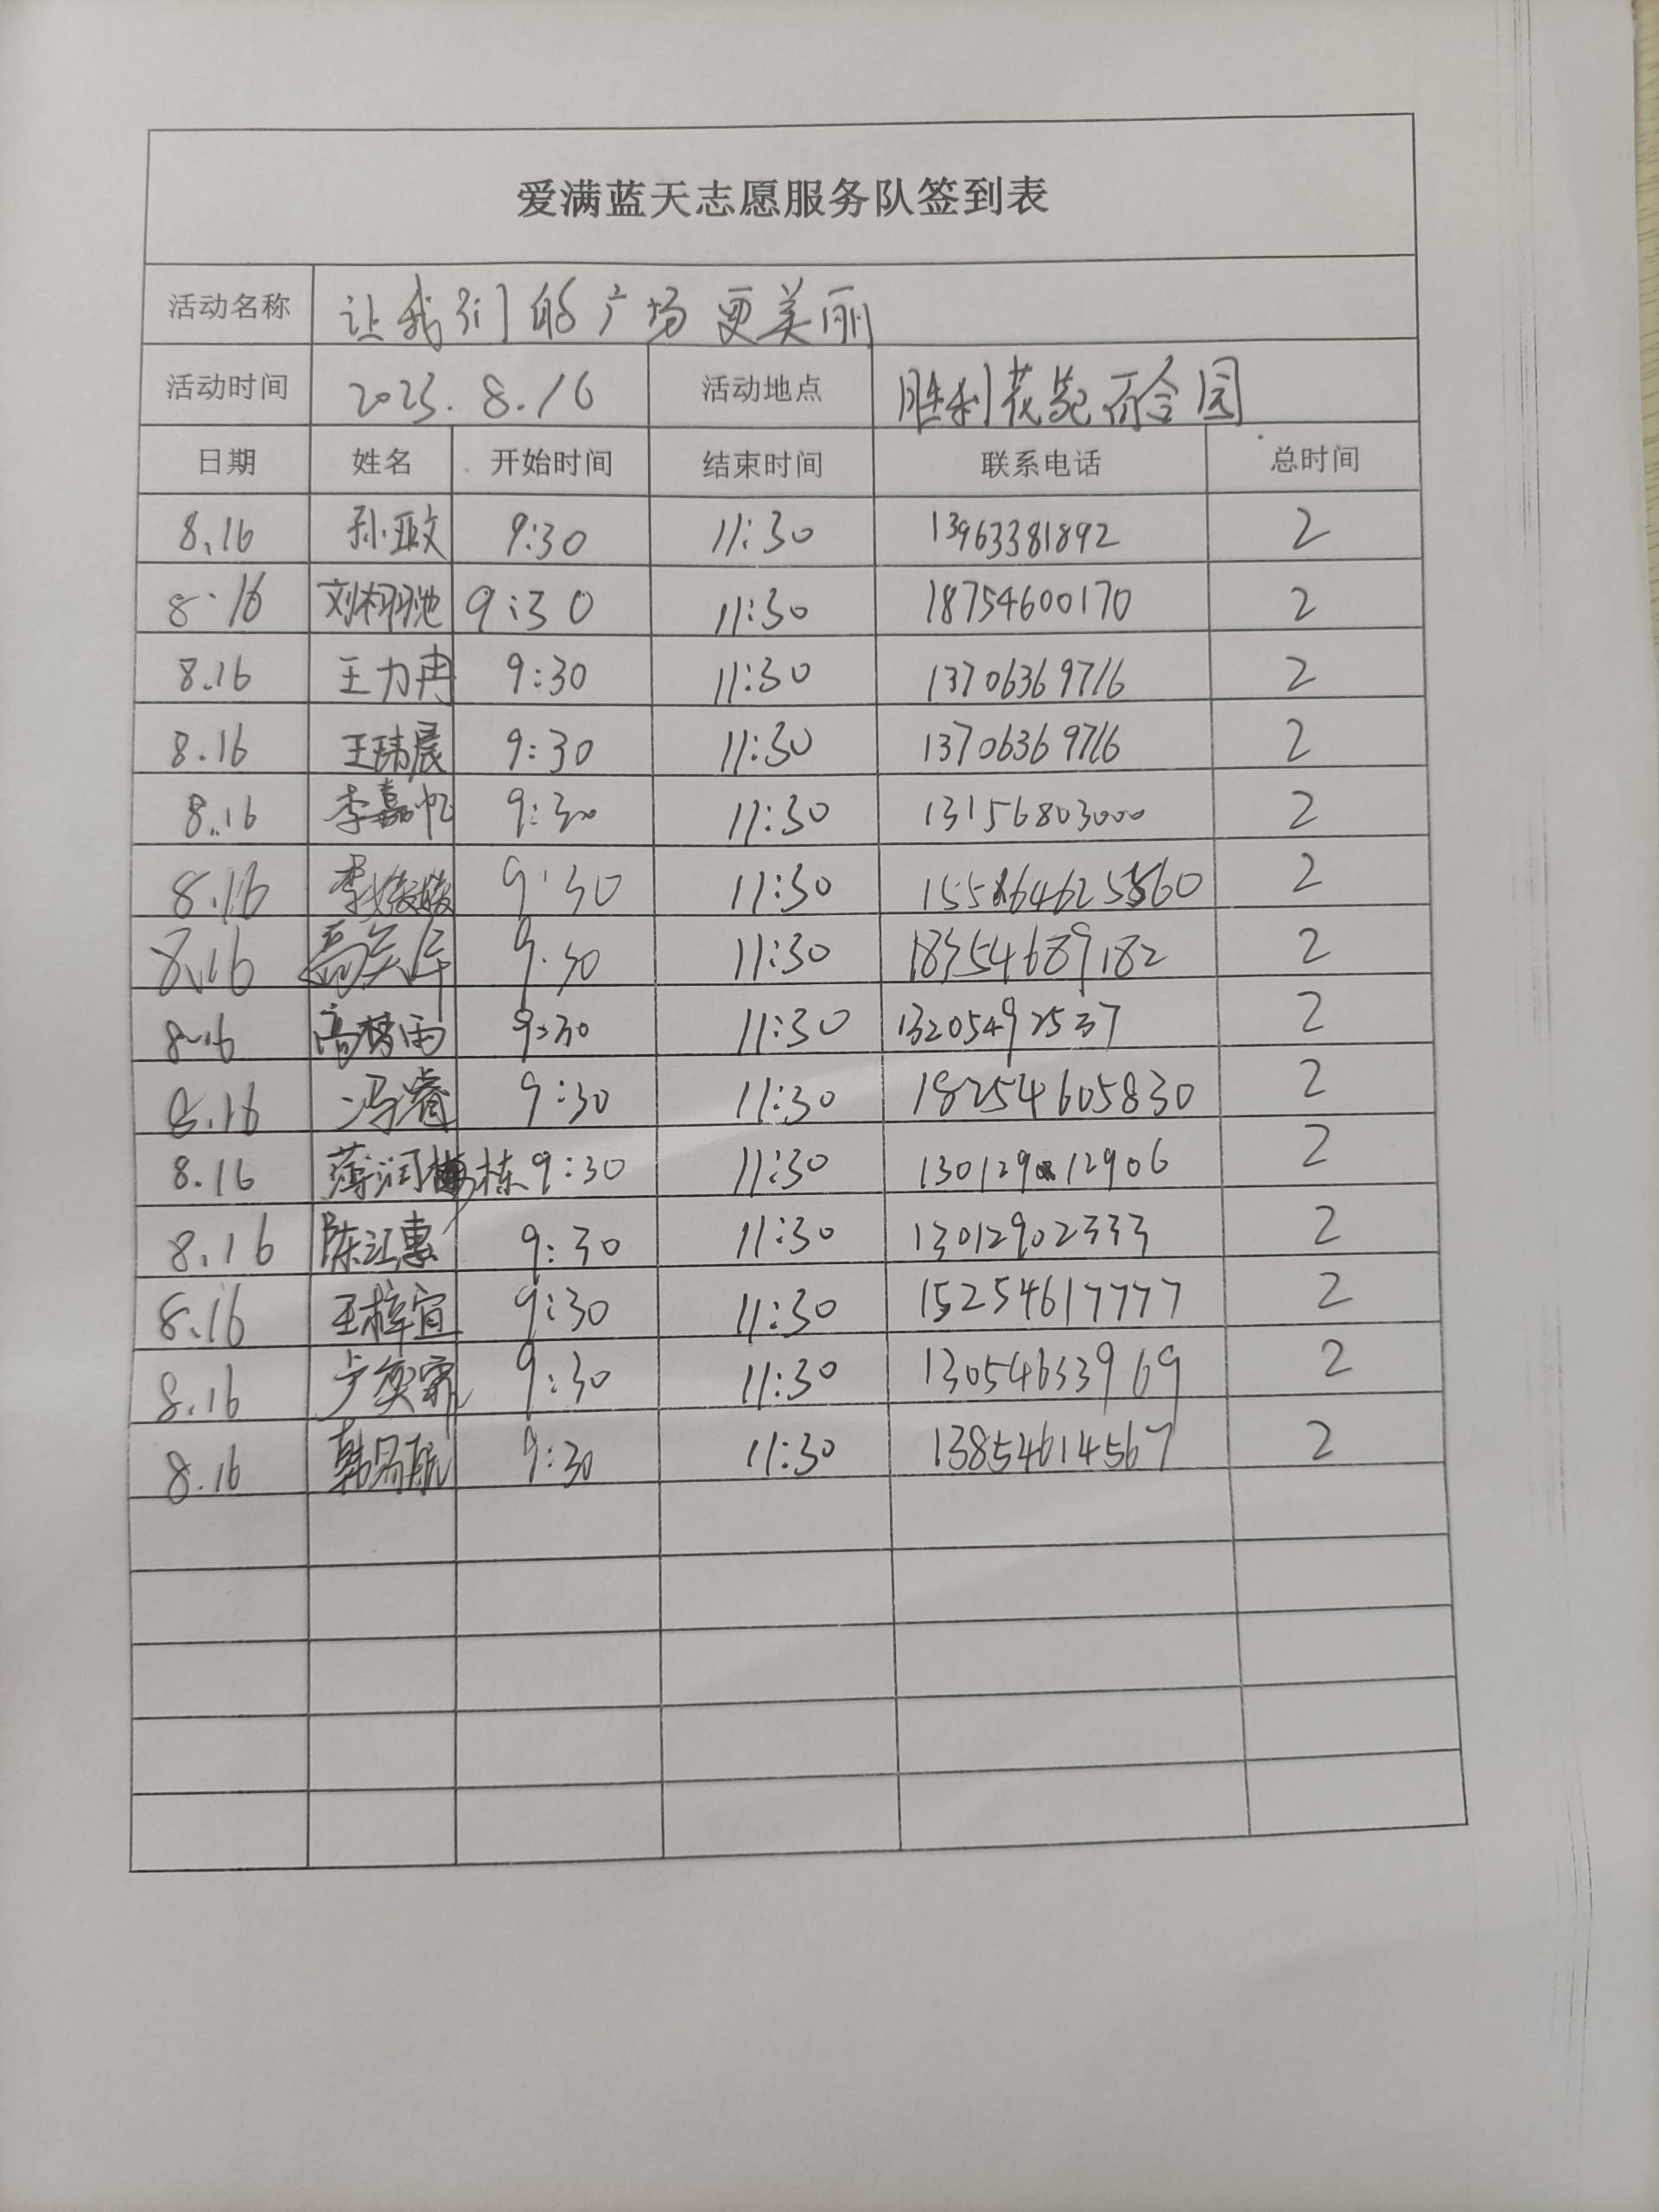 爱满蓝天志愿服务队签到表
活动名称 让我们的广场更美丽
活动时间 2023.8.16 活动地点 胜利花苑百合园
日期 姓名 开始时间 结束时间 联系电话 总时间
8.16 孙亚文 9:30 11:30 13963381892 2
8.16 9:30 11:30 18754600170 2
8.16 王力冉 9:30 11:30 13706369716 2
8.16 王玮晨 9:30 11:30 13706369716 2
8.16 李嘉忆 9:30 11:30 13156803000 2
8.16 9:30 11:30 2
8.16 9:30 11:30 18354689182 2
8.16 高梦雨 9:30 11:30 13205492537 2
8.16 冯睿 9:30 11:30 18254605830 2
8.16 薄润栋 9:30 11:30 13012912906 2
8.16 陈江惠 9:30 11:30 13012902333 2
8.16 王梓宜 9:30 11:30 15254617777 2
8.16 卢奕霏 9:30 11:30 13054633969 2
8.16 韩易航 9:30 11:30 13854614567 2